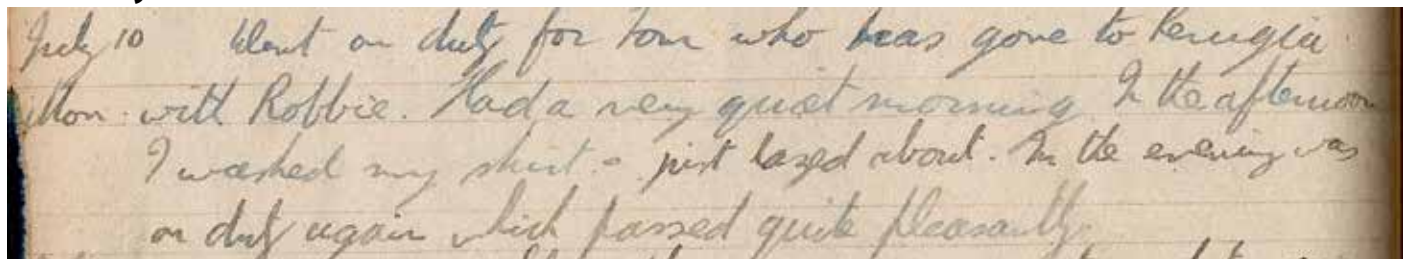 July 10 Went on duty for Tom who has gone to Perugia
Mon. with Robbie. Had a very quiet morning. In the afternoon
I washed my shirt & just lazed about. In the evening was
on duty again which passed quite pleasantly.